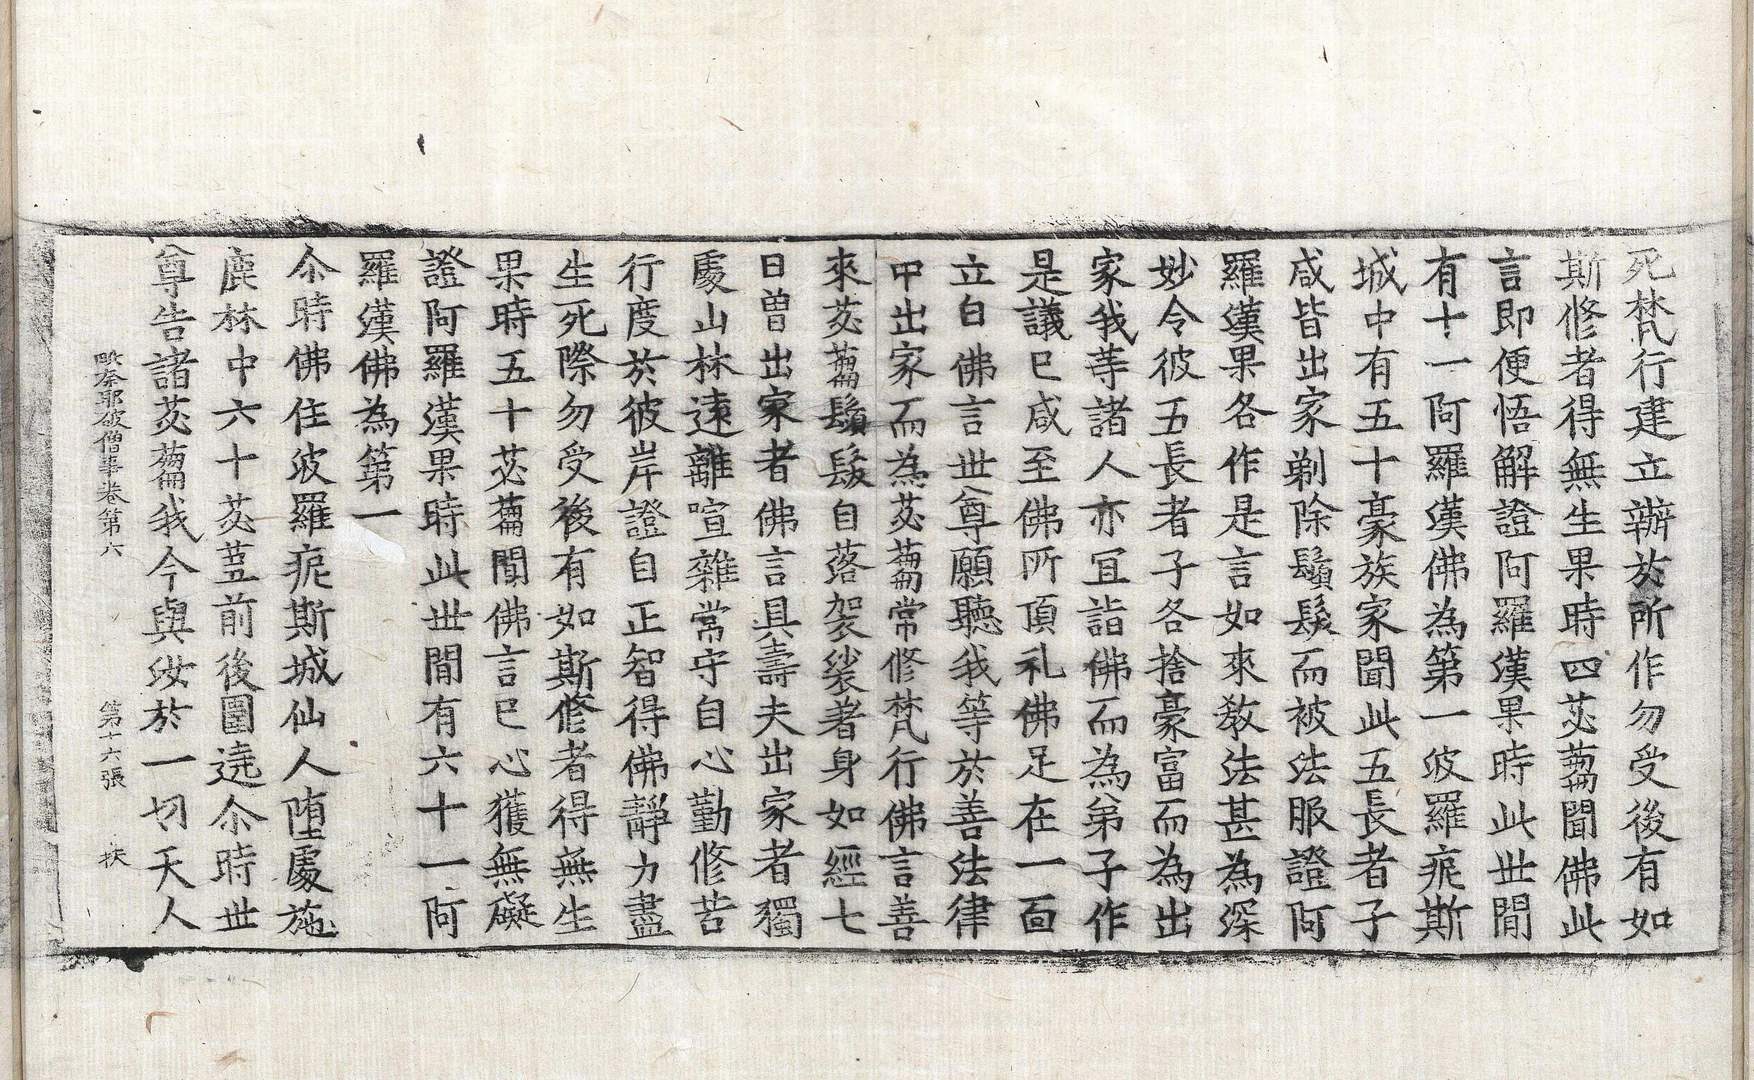 死梵行建立辦於所作勿受後有如
斯修者得無生果時四苾蒭聞佛此
言即便悟解證阿羅漢果時此世間
有十一阿羅漢佛為第一波羅痆斯
城中有五十豪族家聞此五長者子
咸皆出家剃除鬚髮而被法服證阿
羅漢果各作是言如來教法甚為深
妙令彼五長者子各捨豪富而為出
家我等諸人亦宜詣佛而為弟子作
是議已咸至佛所頂礼佛足在一面
立白佛言世尊願聽我等於善法律
中出家而為苾蒭常修梵行佛言善
來苾蒭鬚髮自落袈裟著身如經七
日曾出家者佛言具壽夫出家者獨
處山林遠離喧雜常守自心勤修苦
行度於彼岸證自正智得佛靜力盡
生死際勿受後有如斯修者得無生
果時五十苾蒭聞佛言已心獲無礙
證阿羅漢果時此世間有六十一阿
羅漢佛為第一
尒時佛住波羅痆斯城仙人堕處施
鹿林中六十苾蒭前後圍遶尒時世
尊告諸苾蒭我今與汝於一切天人
毗奈耶破僧事卷第六 第十六張 扶